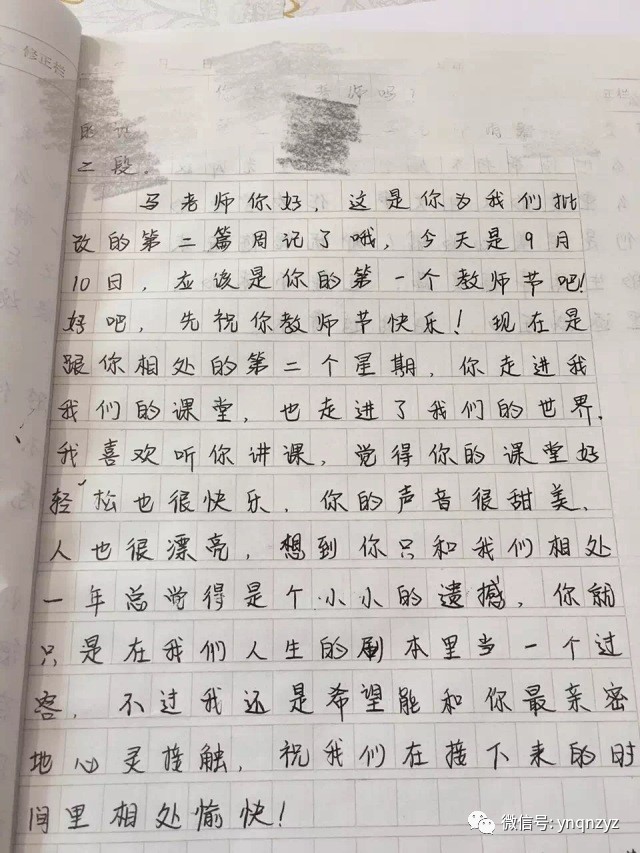 修正栏
老师吗?
二段.
马老师你好，这是你为我们批
改的第二篇周记了哦，今天是9月
10日，应该是你的第一个教师节吧!
好吧，先祝你教师节快乐！现在是
跟你相处的第二个星期，你走进我
我们的课堂，也走进了我们的世界.
我喜欢听你讲课，觉得你的课堂好
轻松也很快乐.你的声音很甜美.
人也很漂亮，想到你只和我们相处
一年总觉得是个小小的遗憾，你就
只是在我们人生的剧本里当一个过
客，不过我还是希望能和你最亲密
地心灵接触，祝我们在接下来的时
间里相处愉快！
微信号: ynqnzyz